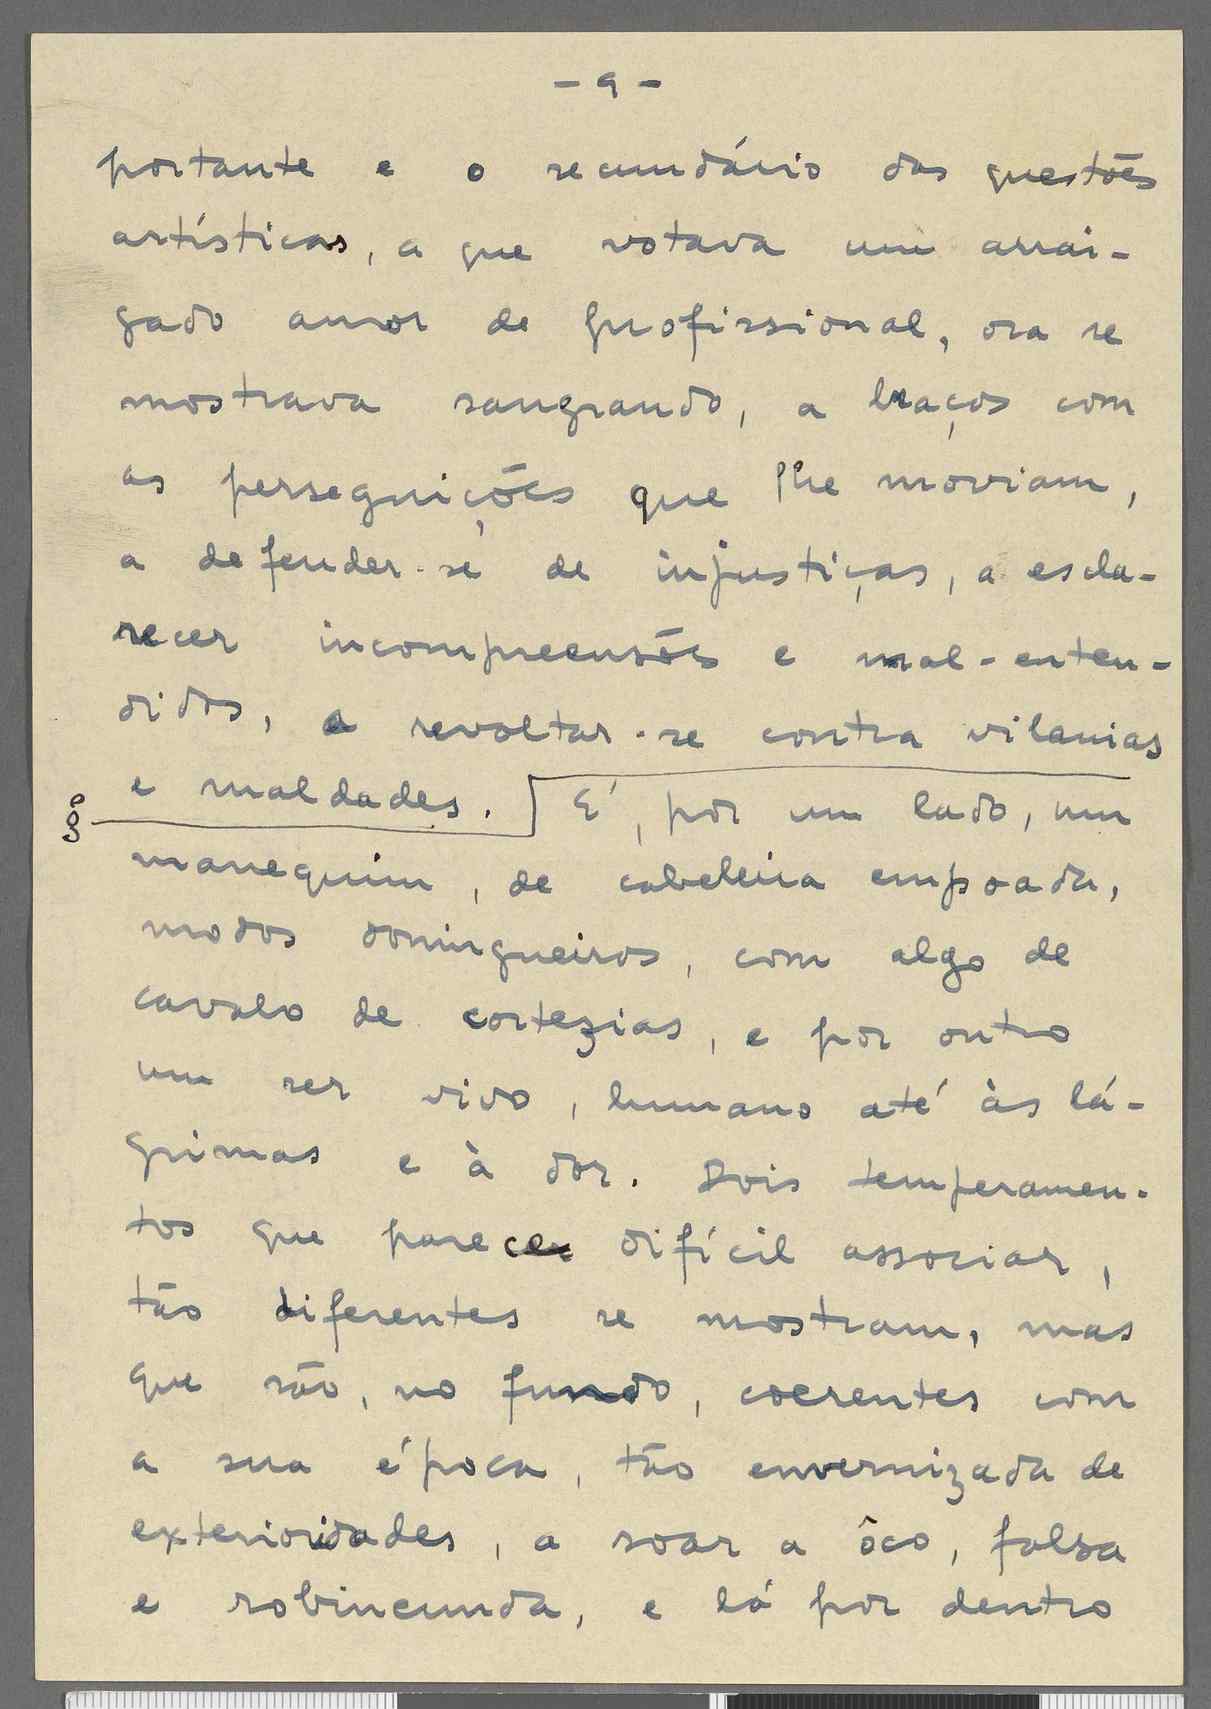 - 9 -
portante e o secundário das questões
artísticas, a que votava um arrai-
gado amor de profissional, ora se
mostrava sangrando, a braços com
as perseguições que lhe moviam,
a defender-se de injustiças, a escla-
recer incompreensões e mal-enten-
didos, a revoltar-se contra vilanias
e maldades. É, por um lado, um
manequim, de cabeleira empoada,
modos domingueiros, com algo de
cavalo de cortezias, e por outro
um ser vivo, humano até às lá-
grimas e à dor. Dois temperamen-
tos que parece difícil associar,
tão diferentes se mostram, mas
que são, no fundo, coerentes com
a sua época, tão envernizada de
exterioridades, a soar a ôco, falsa
e robincunda, e lá por dentro